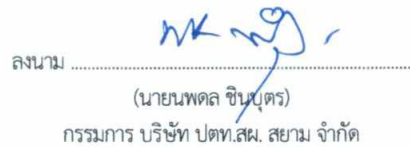 ลงนาม
(นายนพดล ชินบุตร)
กรรมการ บริษัท ปตท.สผ. สยาม จำกัด